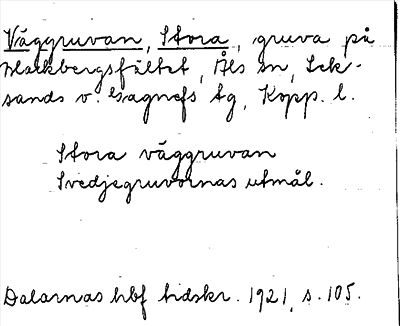 Väggruvan, Stora, gruva på
Hackbergsfältet, Åls sn, Lek-
sands o. Gagnefs tg, Kopp. l.
Stora väggruvan
Svedjegruvornas utmål.
Dalarnas hbf tidskr. 1921, s. 105.